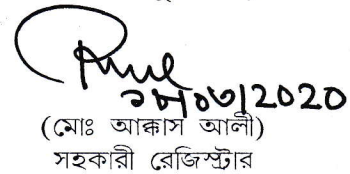 ১৮/০৩/2020
(মোঃ আক্কাস আলী)
সহকারী রেজিস্ট্রার